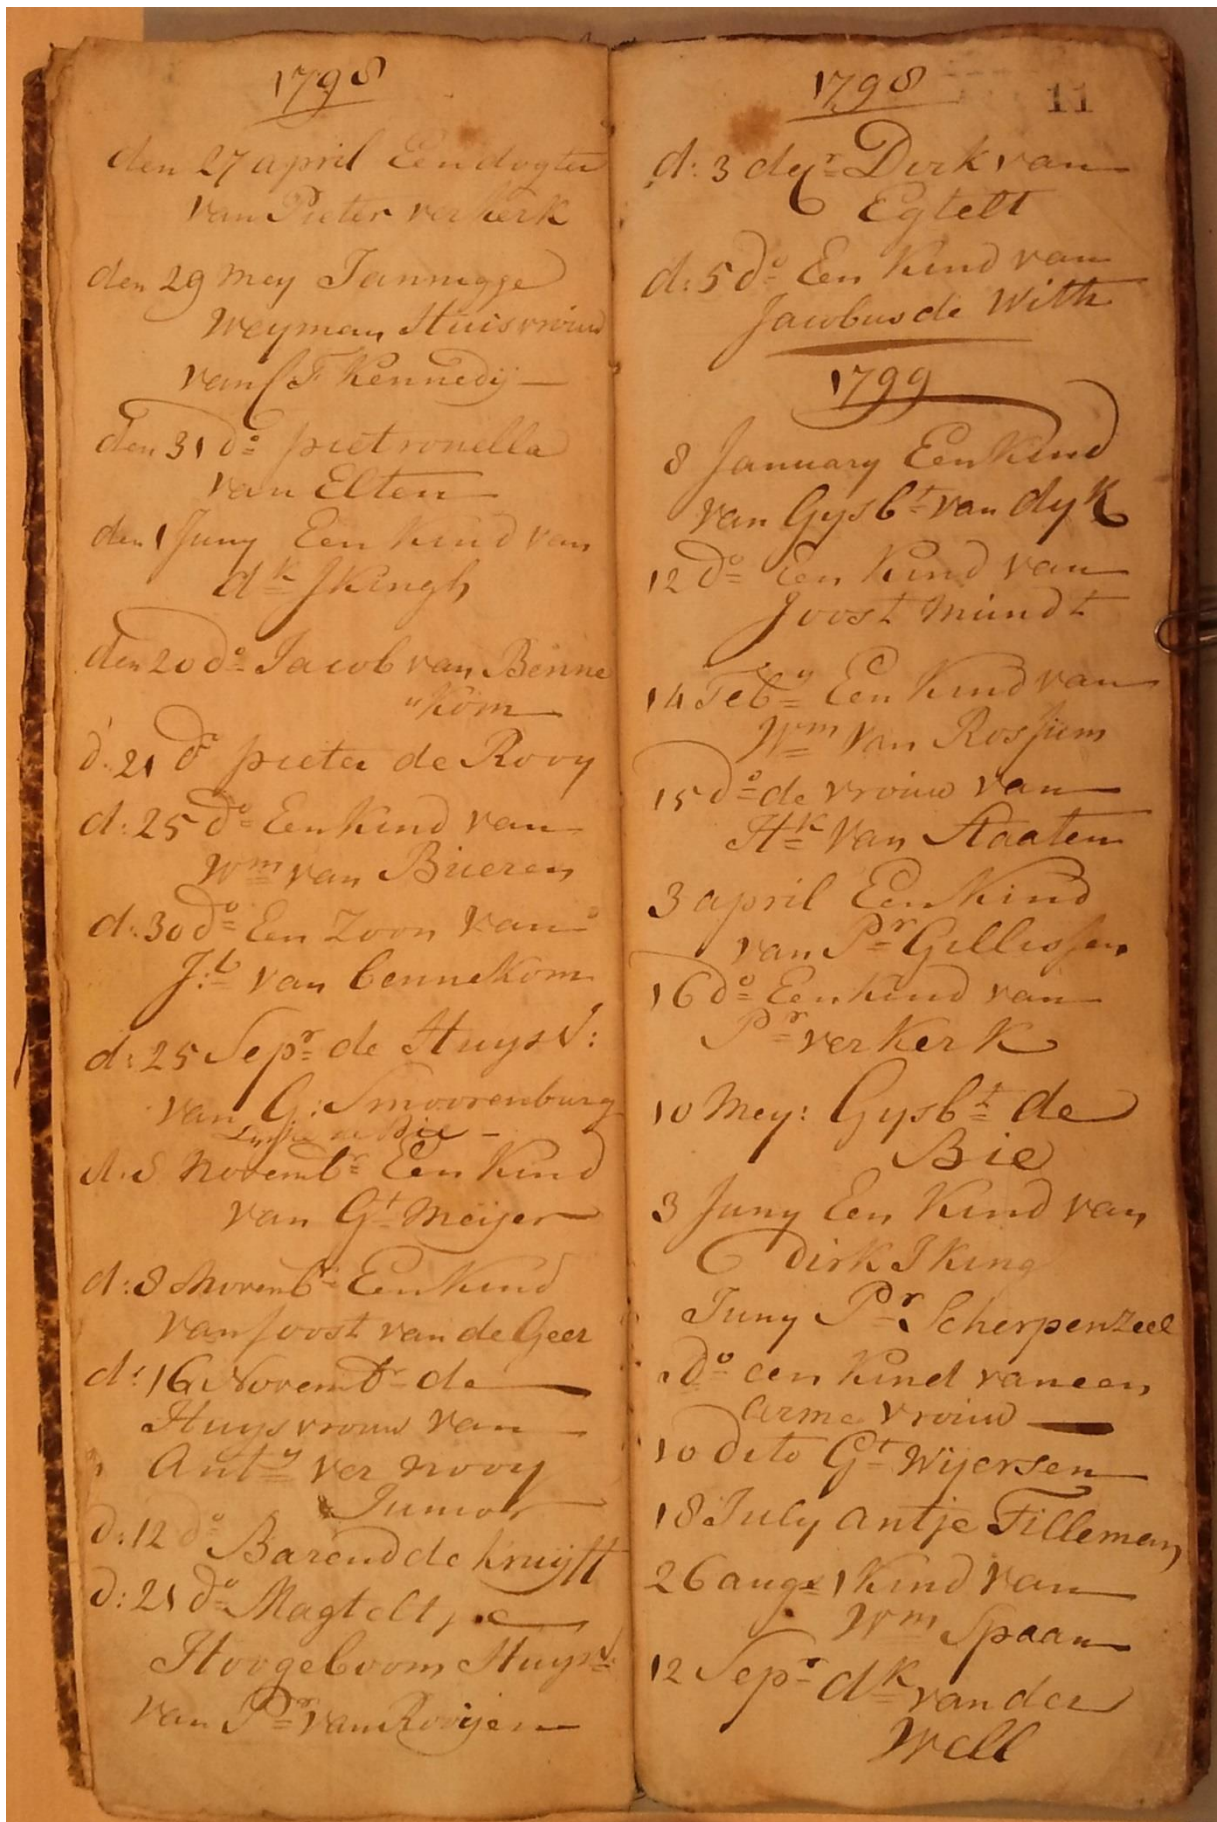 1798
den 27 april Een dogter
van Pieter verkerk
den 29 Mey Jannigge
Weyman Huisvrouw
van F Kennedij
den 31 do pietronella
van Elten
den 1 Juny Een kind van
dk Jkingh
den 20 do Jacob van Benne
"kom
d: 21 do pieter de Rooy
d: 25 do Een kind van
Wm van Bueren
d: 30 do Een Zoon van
J:b van bennekom
d: 25 Sepr de Huys V:
van G: Smoorenburg
de Bie
d: 5 novembr Een Kind
van Gt Meijer
d: 8 Novembr Een kind
van Joost van de Geer
d: 16 Novembr de
Huysvrouw van
Anty ver nooy
Junior
d: 12 do Barend de kruyft
d: 21 do Magteltje
Hoogeboom Huysv:
van Pr van Rooijen
1798 11
d: 3 decr Dirk van
Egtelt
d: 5 do Een kind van
Jacobus de With
1799
8 January Een kind
van Gysbt van dyk
12 do Een kind van
Joost mundt
14 Feby Een kind van
Wm Van Rossum
15 do de vrouw van
Hk Van Staaten
3 april Een kind
van Pr Gillissen
16 do Een kind van
Pr verkerk
10 Mey: Gysbt de
Bie
3 Juny Een Kind van
Dirk Jking
Juny Pr Scherpenzeel
do een kind van een
arme vrouw
10 dito Gt Wijersen
18 July antje Tilleman
26 augs 1 kind van
Wm Spaan
12 Sepr dk van der
Wall